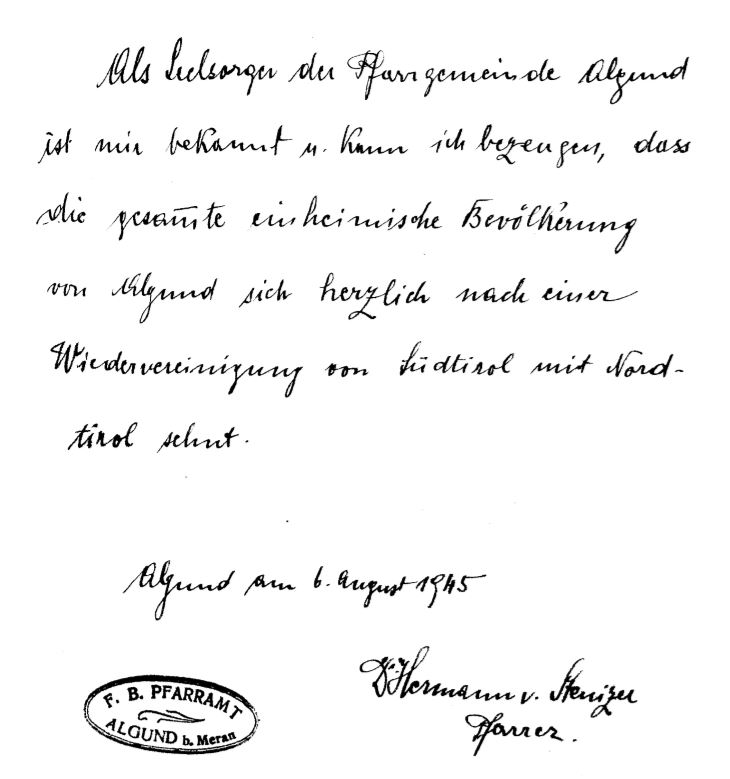 Als Seelsorger der Pfarrgemeinde Algund
ist mir bekannt u. kann ich bezeugen, dass
die gesam̅te einheimische Bevölkerung
von Algund sich herzlich nach einer
Wiedervereinigung von Südtirol mit Nord-
tirol sehnt.
Algund am 6. August 1945
Dr. Hermann v.
Pfarrer.
F. B. PFARRAMT
ALGUND b. Meran